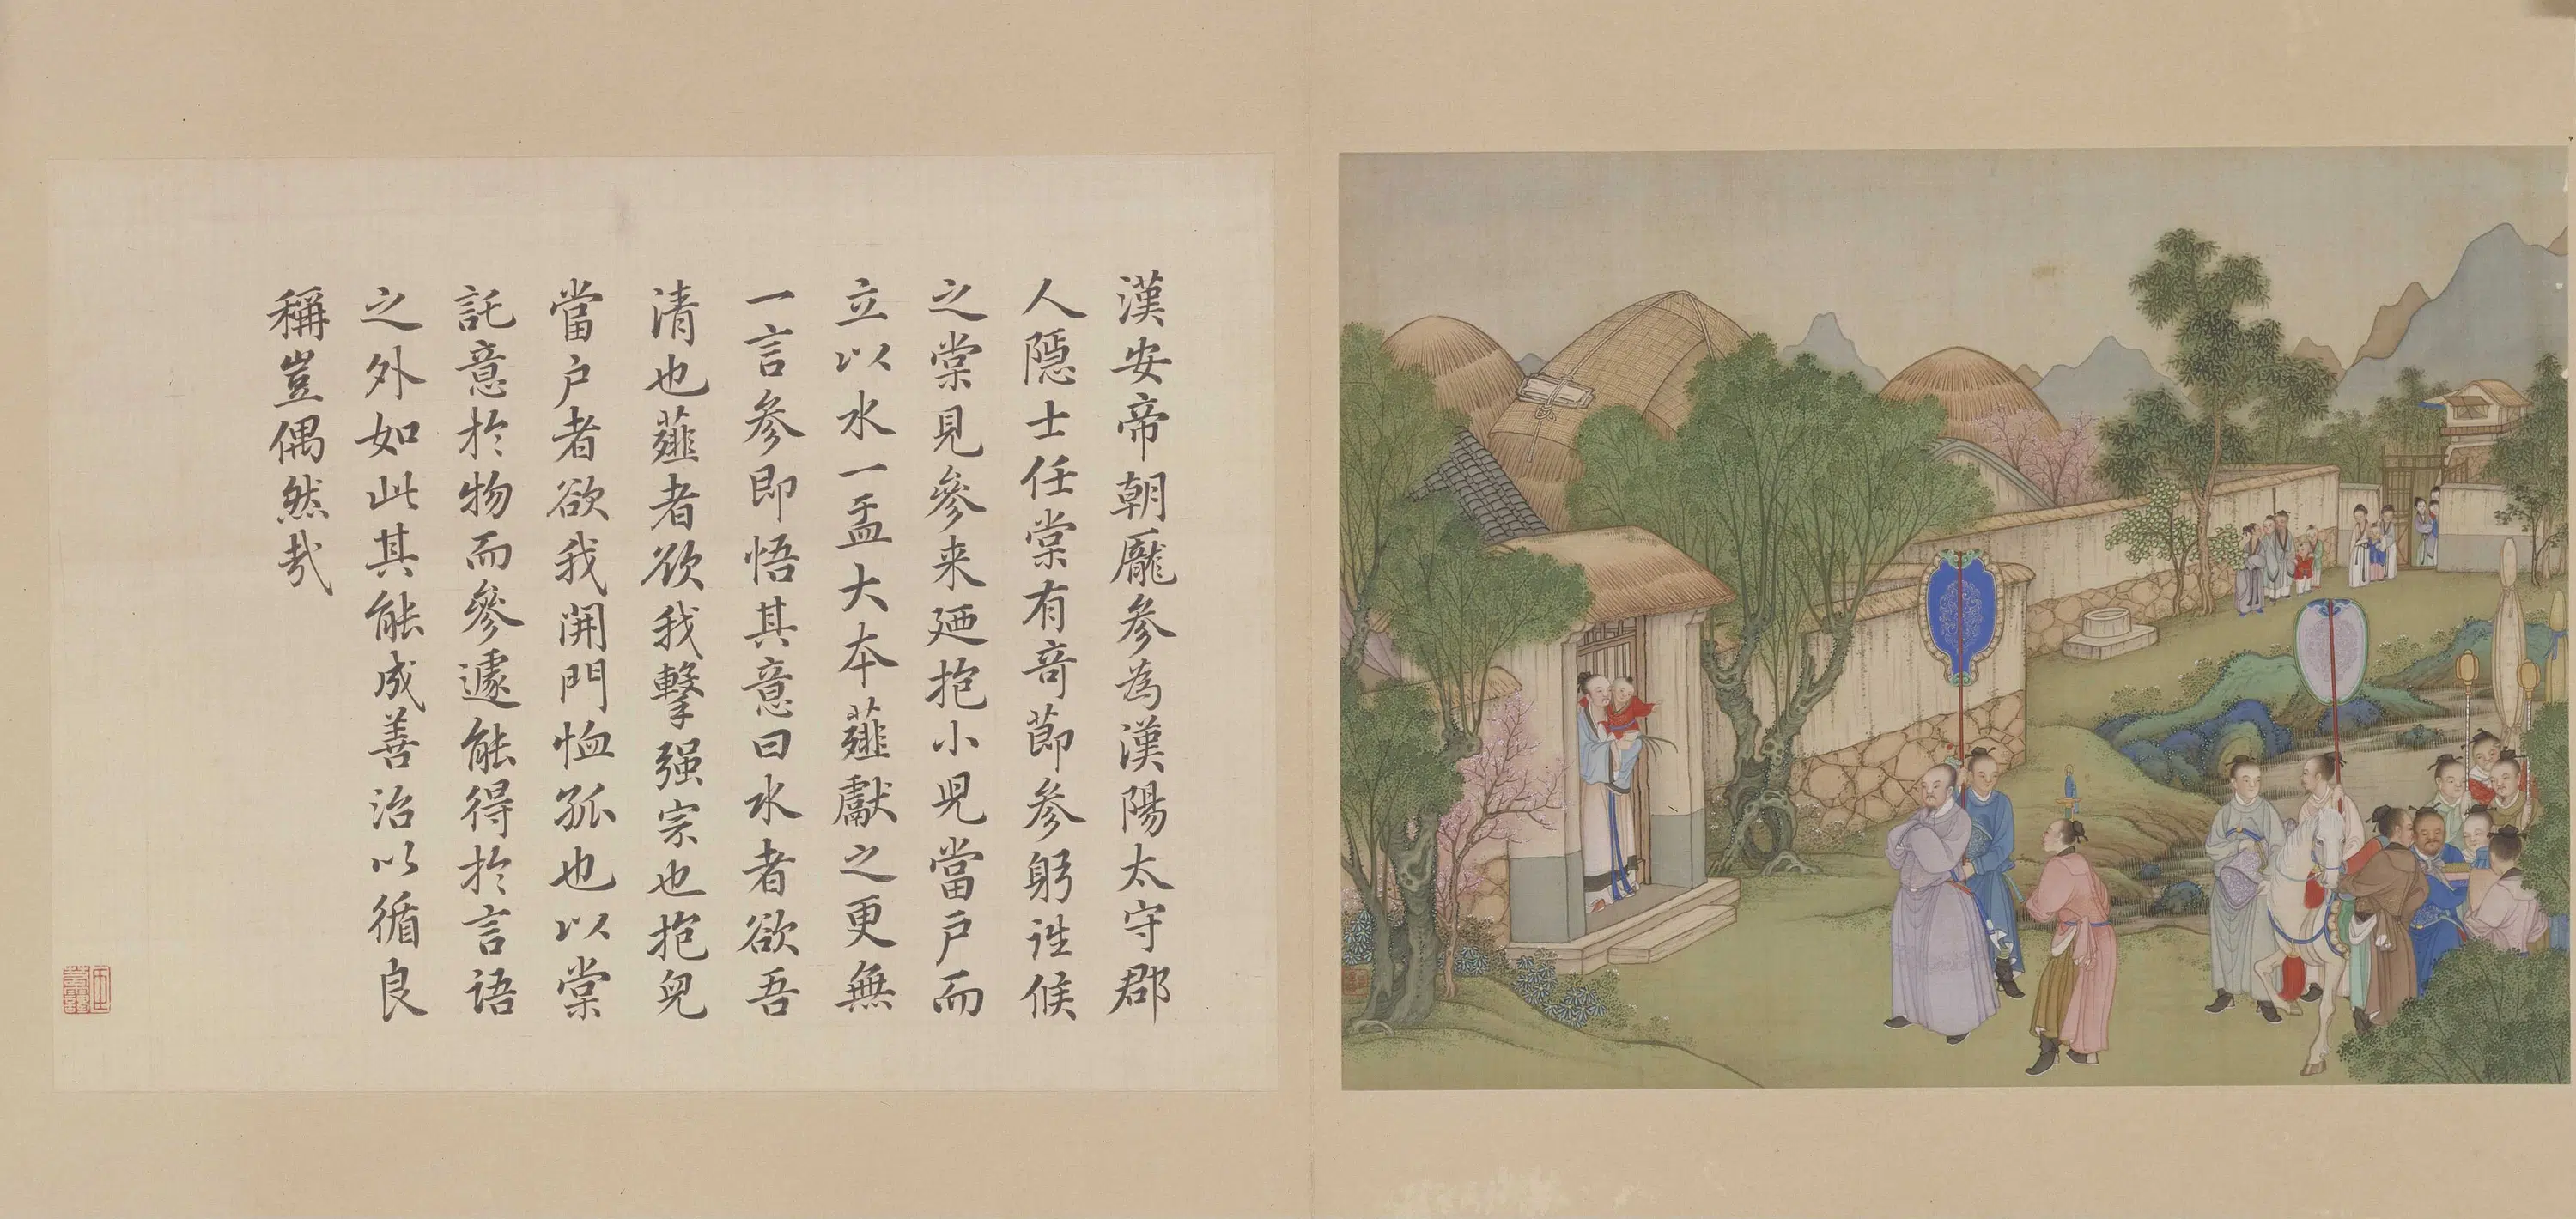 漢安帝朝龐參為漢陽太守郡
人隱士任棠有奇節參躬詣候
之棠見參来廼抱小児當戶而
立以水一盂大本薤獻之更無
一言參即悟其意曰水者欲吾
清也薤者欲我擊强宗也抱兒
當户者欲我開門恤孤也以棠
託意於物而參遽能得於言語
之外如此其能成善治以循良
稱豈偶然哉